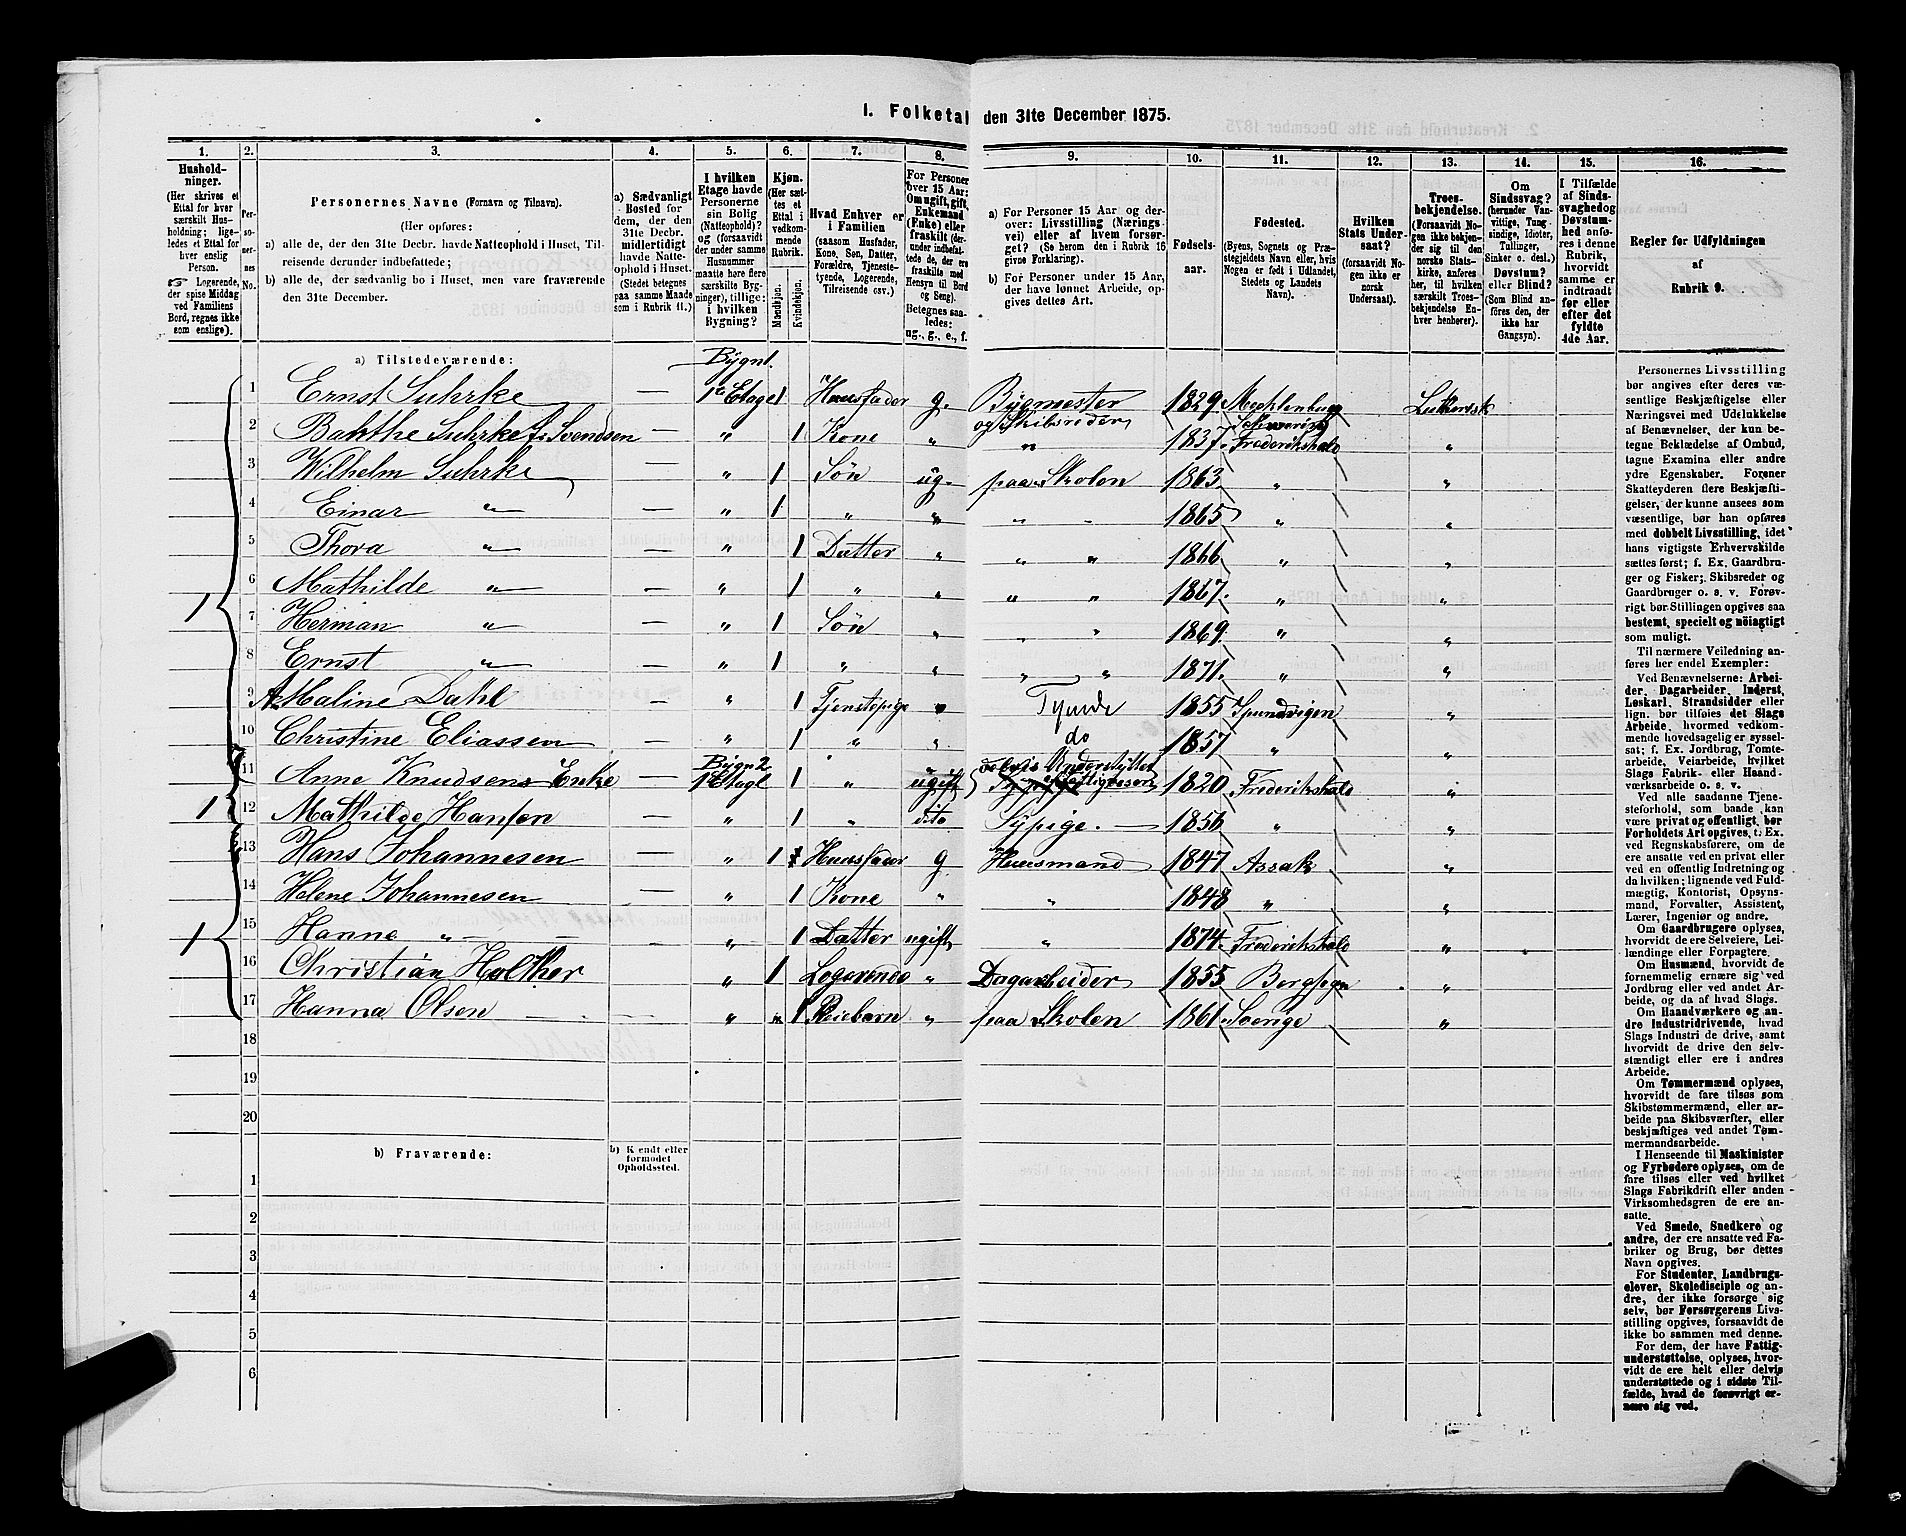 1. Folketal den 31te December 1875.
1. 2. 3. 4. 5. 6. 7. 8. 9. 10. 11. 12. 13. 14. 15. 16.
Hushold-
ninger.
(Her skrives et
Ettal for hver
særskilt Hus-
holdning; lige-
ledes et Ettal for
hver enslig
Person.
☞ Logerende,
der spise Middag
ved Familiens
Bord, regnes ikke
som enslige).
Per-
so-
ner-
nes
No.
Personernes Navne (Fornavn og Tilnavn).
(Her opføres:
a) alle de, der den 31te Decbr. havde Natteophold i Huset, Til-
reisende derunder indbefattede;
b) alle de, der sædvanlig bo i Huset, men vare fraværende
den 31te December.
a) Sædvanligt
Bosted for
dem, der den
31te Decbr.
midlertidigt
havde Natte-
ophold i Huset.
(Stedet betegnes
paa samme Maade
som i Rubrik 11.)
I hvilken
Etage havde
Personerne
sin Bolig
(Natteophold)?
og (forsaavidt
der under samme
Husnummer
maatte høre flere
særskilte Byg-
ninger), tillige:
i hvilken
Bygning?
Kjøn.
(Her sæt-
tes et
Ettal i
vedkom-
mende
Rubrik.
Mandkjøn.
Kvindekjøn.
Hvad Enhver er
i Familien
(saasom Husfader,
Kone, Søn, Datter,
Forældre, Tjeneste-
tyende, Logerende,
Tilreisende osv.)
For Personer
over 15 Aar:
Om ugift, gift,
Enkemand
(Enke) eller
fraskilt (der-
under indbefat-
tede de, der ere
fraskilte med
Hensyn til Bord
og Seng).
Betegnes saa-
ledes:
ug., g., e., f.
a) For Personer 15 Aar og der-
over: Livsstilling (Nærings-
vei) eller af hvem forsør-
get? (Se herom den i Rubrik 16
givne Forklaring).
b) For Personer under 15 Aar,
der have lønnet Arbeide, op-
gives dettes Art.
Fødsels-
aar.
Fødested.
(Byens, Sognets og Præ-
stegjeldets Navn eller, hvis
Nogen er født i Udlandet,
Stedets og Landets
Navn).
Hvilken
Stats Under-
saat?
(forsaavidt No-
gen ikke er
norsk
Undersaat).
Troes-
bekjendelse.
(Forsaavidt No-
gen ikke bekjen-
der sig til den
norske Stats-
kirke, anføres
her, til hvilken
særskilt Troes-
bekjendelse En-
hver henhører).
Om
Sindssvag?
(herunder Van-
vittige, Tung-
sindige, Idioter,
Tullinger,
Sinker o. desl.)
Døvstum?
eller Blind?
(Som Blind an-
føres den, der
ikke har
Gangsyn).
I Tilfælde
af Sinds-
svaghed og
Døvstum-
hed anfø-
res i denne
Rubrik,
hvorvidt
samme er
indtraadt
før eller
efter det
fyldte
4de Aar.
Regler for Udfyldningen
af
Rubrik 9.
a) Tilstedeværende:
Bygn1.
1 Ernst Suhrke — 1e Etage 1 Huusfader g. Bygmester og Skibsreder 1829 Mechlenburg Schwerin Luthersk
2 Bahthe Suhrke f. Svendsen — " 1 Kone " " 1837 Frederikshald "
3 Wilhelm Suhrke — " 1 Søn ug. paa Skolen 1863 " "
4 Einar " — " 1 " " " 1865 " "
5 Thora " — " 1 Datter " " " 1866 " "
1 6 Mathilde " — " 1 " " " " 1867 " "
7 Herman " — " 1 Søn " " " 1869 " "
8 Ernst " — " 1 " " " " 1871 " "
9 A Maline Dahl " 1 Tjenstepige " Tyende 1855 Spundvigen "
10 Christine Eliassen — " 1 " " do 1857 " "
Bygn 2
11 Anne Knudsens Enke — 1e Etage 1 " ugift delvis Understyttet 1820 Frederikshald "
1 12 Mathilde Hansen — " 1 " dito Sypige. — 1856 " "
13 Hans Johannesen " 1 Huusfader g Huusmand 1847 Assak "
14 Helene Johannesen — " 1 Kone " " 1848 " "
1 15 Hanne " — " 1 Datter ugift " 1874 Frederikshald "
16 Christian Holther " 1 Logerende " Dagarbeider 1855 Berg "
17 Hanna Olsen — " 1 Pleiebarn " paa Skolen 1861 Sverige "
18
19
20
b) Fraværende:
b) Kjendt eller
formodet
Opholdssted.
1
2
3
4
5
6
Personernes Livsstilling
bør angives efter deres væ-
sentlige Beskjæftigelse eller
Næringsvei med Udelukkelse
af Benævnelser, der kun be-
tegne Beklædelse af Ombud,
tagne Examina eller andre
ydre Egenskaber. Forener
Skatteyderen flere Beskjæfti-
gelser, der kunne ansees som
væsentlige, bør han opføres
med dobbelt Livsstilling, idet
hans vigtigste Erhvervskilde
sættes først; f. Ex. Gaardbru-
ger og Fisker; Skibsreder og
Gaardbruger o. s. v. Forøv-
rigt bør Stillingen opgives saa
bestemt, specielt og nøiagtigt
som muligt.
Til nærmere Veiledning an-
føres her endel Exempler:
Ved Benævnelserne: Arbei-
der, Dagarbeider, Inderst,
Løskarl, Strandsidder eller
lign. bør tilføies det Slags
Arbeide, hvormed vedkom-
mende hovedsagelig er syssel-
sat; f. Ex. Jordbrug, Tomte-
arbeide, Veiarbeide, hvilket
Slags Fabrik- eller Haand-
værksarbeide o. s. v.
Ved alle saadanne Tjene-
steforhold, som baade kan
være privat og offentligt, bør
Forholdets Art opgives, t. Ex.
ved Regnskabsførere, om de
ere ansatte ved en privat eller
ved en offentlig Indretning og
da hvilken; lignende ved Fuld-
mægtig, Kontorist, Opsyns-
mand, Forvalter, Assistent,
Lærer, Ingeniør og andre.
Om Gaardbrugere oplyses,
hvorvidt de ere Selveiere, Lei-
lændinge eller Forpagtere.
Om Husmænd, hvorvidt de
fornemmelig ernære sig ved
Jordbrug eller ved andet Ar-
beide, og da af hvad Slags.
Om Haandværkere og an-
dre Industridrivende, hvad
Slags Industri de drive, samt
hvorvidt de drive den selv-
stændigt eller ere i andres
Arbeide.
Om Tømmermænd oplyses,
hvorvidt de fare tilsøs som
Skibstømmermænd, eller ar-
beide paa Skibsværfter, eller
beskjæftiges ved andet Tøm-
mermandsarbeide.
I Henseende til Maskinister
og Fyrbødere oplyses, om de
fare tilsøs eller ved hvilket
Slags Fabrikdrift eller anden
Virksomhedsgren de ere an-
satte.
Ved Smede, Snedkere og
andre, der ere ansatte ved Fa-
briker og Brug, bør dettes
Navn opgives.
For Studenter, Landbrugs-
elever, Skoledisciple og an-
dre, der ikke forsørge sig
selv, bør Forsørgerens Livs-
stilling opgives, forsaavidt de
ikke bo sammen med denne.
For dem, der have Fattig-
understøttelse, oplyses, hvor-
vidt de ere helt eller delvis
understøttede og i sidste Til-
fælde, hvad de forøvrigt er-
nære sig ved.